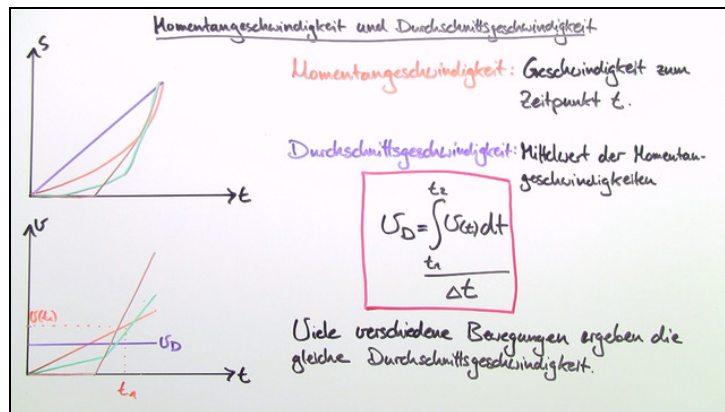 Momentangeschwindigkeit und Durchschnittsgeschwindigkeit
S
t
Momentangeschwindigkeit: Geschwindigkeit zum
Zeitpunkt t.
Durchschnittsgeschwindigkeit: Mittelwert der Momentan-
geschwindigkeiten
v
v(t₁)
v_D
t₁
t
t₂
v_D = ∫ v(t) dt
t₁
Δt
Viele verschiedene Bewegungen ergeben die
gleiche Durchschnittsgeschwindigkeit.